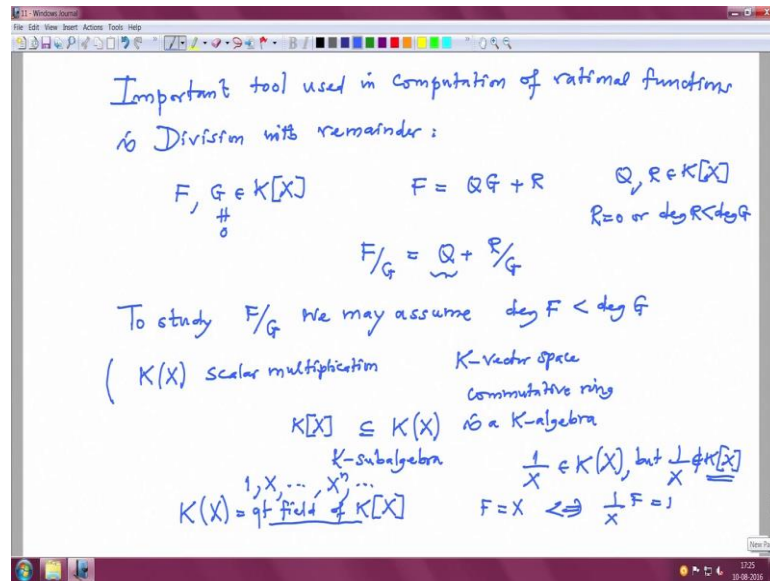 11 - Windows Journal
File Edit View Insert Actions Tools Help
Important tool used in computation of rational functions
is Division with remainder:
F, G ∈ K[X] F = QG + R Q, R ∈ K[X]
≠ R=0 or deg R < deg G
0
F/G = Q + R/G
To study F/G we may assume deg F < deg G
( K(X) scalar multiplication K-vector space
commutative ring
K[X] ⊆ K(X) is a K-algebra
K-subalgebra 1/X ∈ K(X), but 1/X ∉ K[X]
1, X, ..., X^n, ...
K(X) = qt field of K[X] F = X <=> 1/X F = 1
New Pa
17:25
10-08-2016